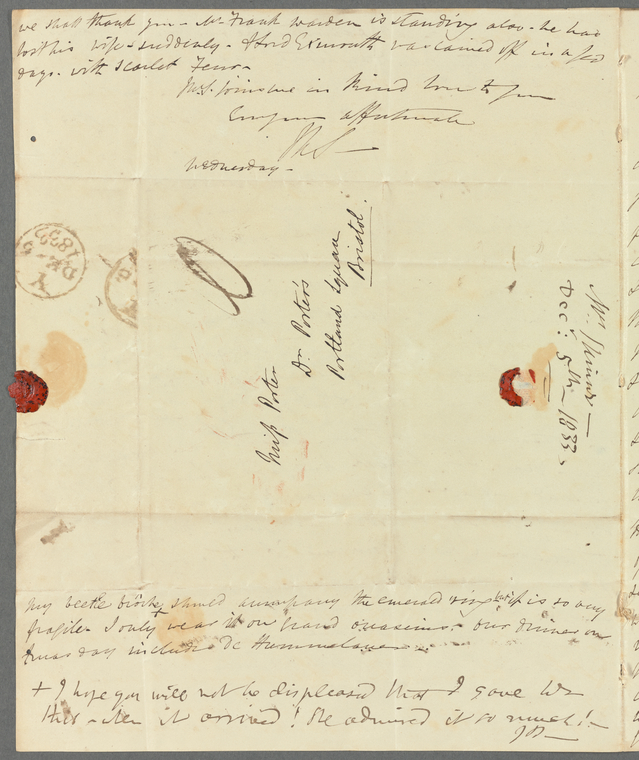 we shall thank you - Mr Frank Warden is standing also - he has
lost his wife - suddenly - & Lord Exmouth was carried off in a few
days - with Scarlet Fever -
joins me in kind love to you
affectionate
Wednesday -
1833
Miss Porter
Dr Porter's
Portland Square
Bristol.
Dec: 5th - 1833.
My beetle should accompany the emerald ring but it is so very
fragile - I only wear it on grand occasions - our dinner on
day
+ I hope you will not be displeased that I gave
this - when it arrived! He admired it so much! -